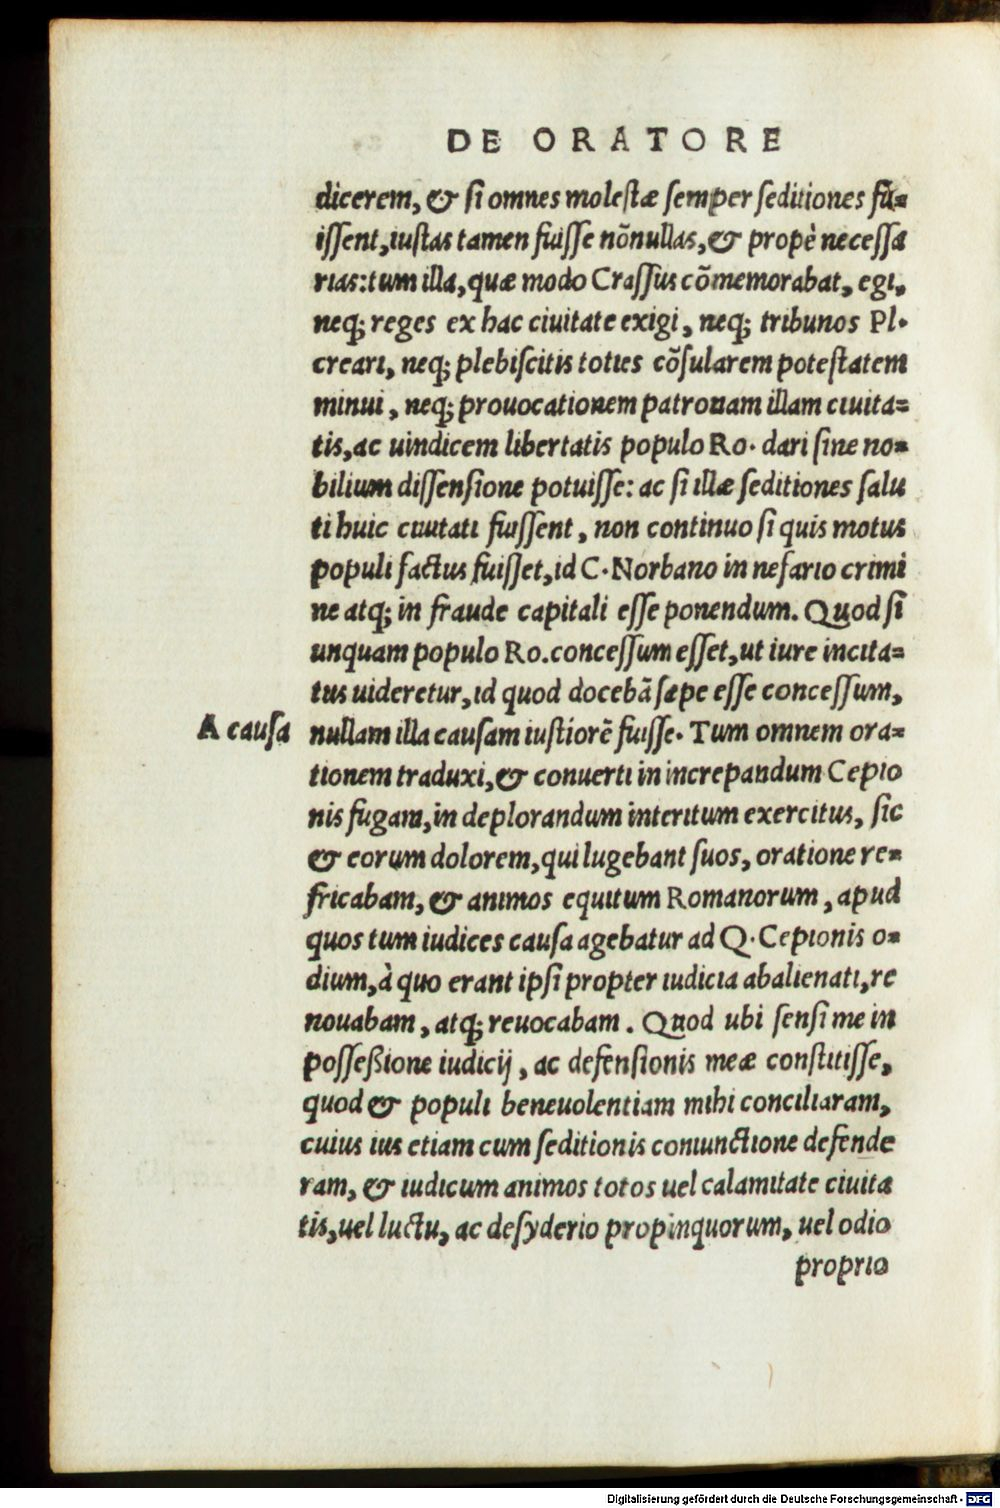 DE ORATORE
dicerem, & si omnes molestæ semper seditiones fu=
issent, iustas tamen fuisse nõnullas, & propè necessa
rias: tum illa, quæ modo Crassus cõmemorabat, egi,
neq; reges ex hac ciuitate exigi, neq; tribunos Pl.
creari, neq; plebiscitis toties cõsularem potestatem
minui, neq; prouocationem patronam illam ciuita=
tis, ac uindicem libertatis populo Ro. dari sine no=
bilium dissensione potuisse: ac si illæ seditiones salu
ti huic ciuitati fuissent, non continuo si quis motus
populi factus fuisset, id C. Norbano in nefario crimi
ne atq; in fraude capitali esse ponendum. Quod si
unquam populo Ro. concessum esset, ut iure incita=
tus uideretur, id quod docebã sæpe esse concessum,
A causa nullam illa causam iustiorẽ fuisse. Tum omnem ora=
tionem traduxi, & conuerti in increpandum Cepio
nis fugam, in deplorandum interitum exercitus, sic
& eorum dolorem, qui lugebant suos, oratione re=
fricabam, & animos equitum Romanorum, apud
quos tum iudices causa agebatur ad Q. Cepionis o=
dium, à quo erant ipsi propter iudicia abalienati, re
nouabam, atq; reuocabam. Quod ubi sensi me in
posseßione iudicij, ac defensionis meæ constitisse,
quod & populi beneuolentiam mihi conciliaram,
cuius ius etiam cum seditionis coniunctione defende
ram, & iudicum animos totos uel calamitate ciuita
tis, uel luctu, ac desyderio propinquorum, uel odio
proprio
Digitalisierung gefördert durch die Deutsche Forschungsgemeinschaft - DFG